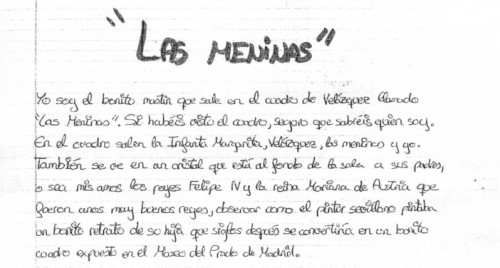 "LAS MENINAS"
Yo soy el bonito mastín que sale en el cuadro de Velázquez llamado
"Las Meninas". Si habéis visto el cuadro, seguro que sabréis quien soy.
En el cuadro salen la Infanta Margarita, Velázquez, las meninas y yo.
También se ve en un cristal que está al fondo de la sala a sus padres,
o sea mis amos los reyes Felipe IV y la reina Mariana de Austria que
fueron unos muy buenos reyes, observar como el pintor sevillano pintaba
un bonito retrato de su hija que siglos después se convertiría en un bonito
cuadro expuesto en el Museo del Prado de Madrid.